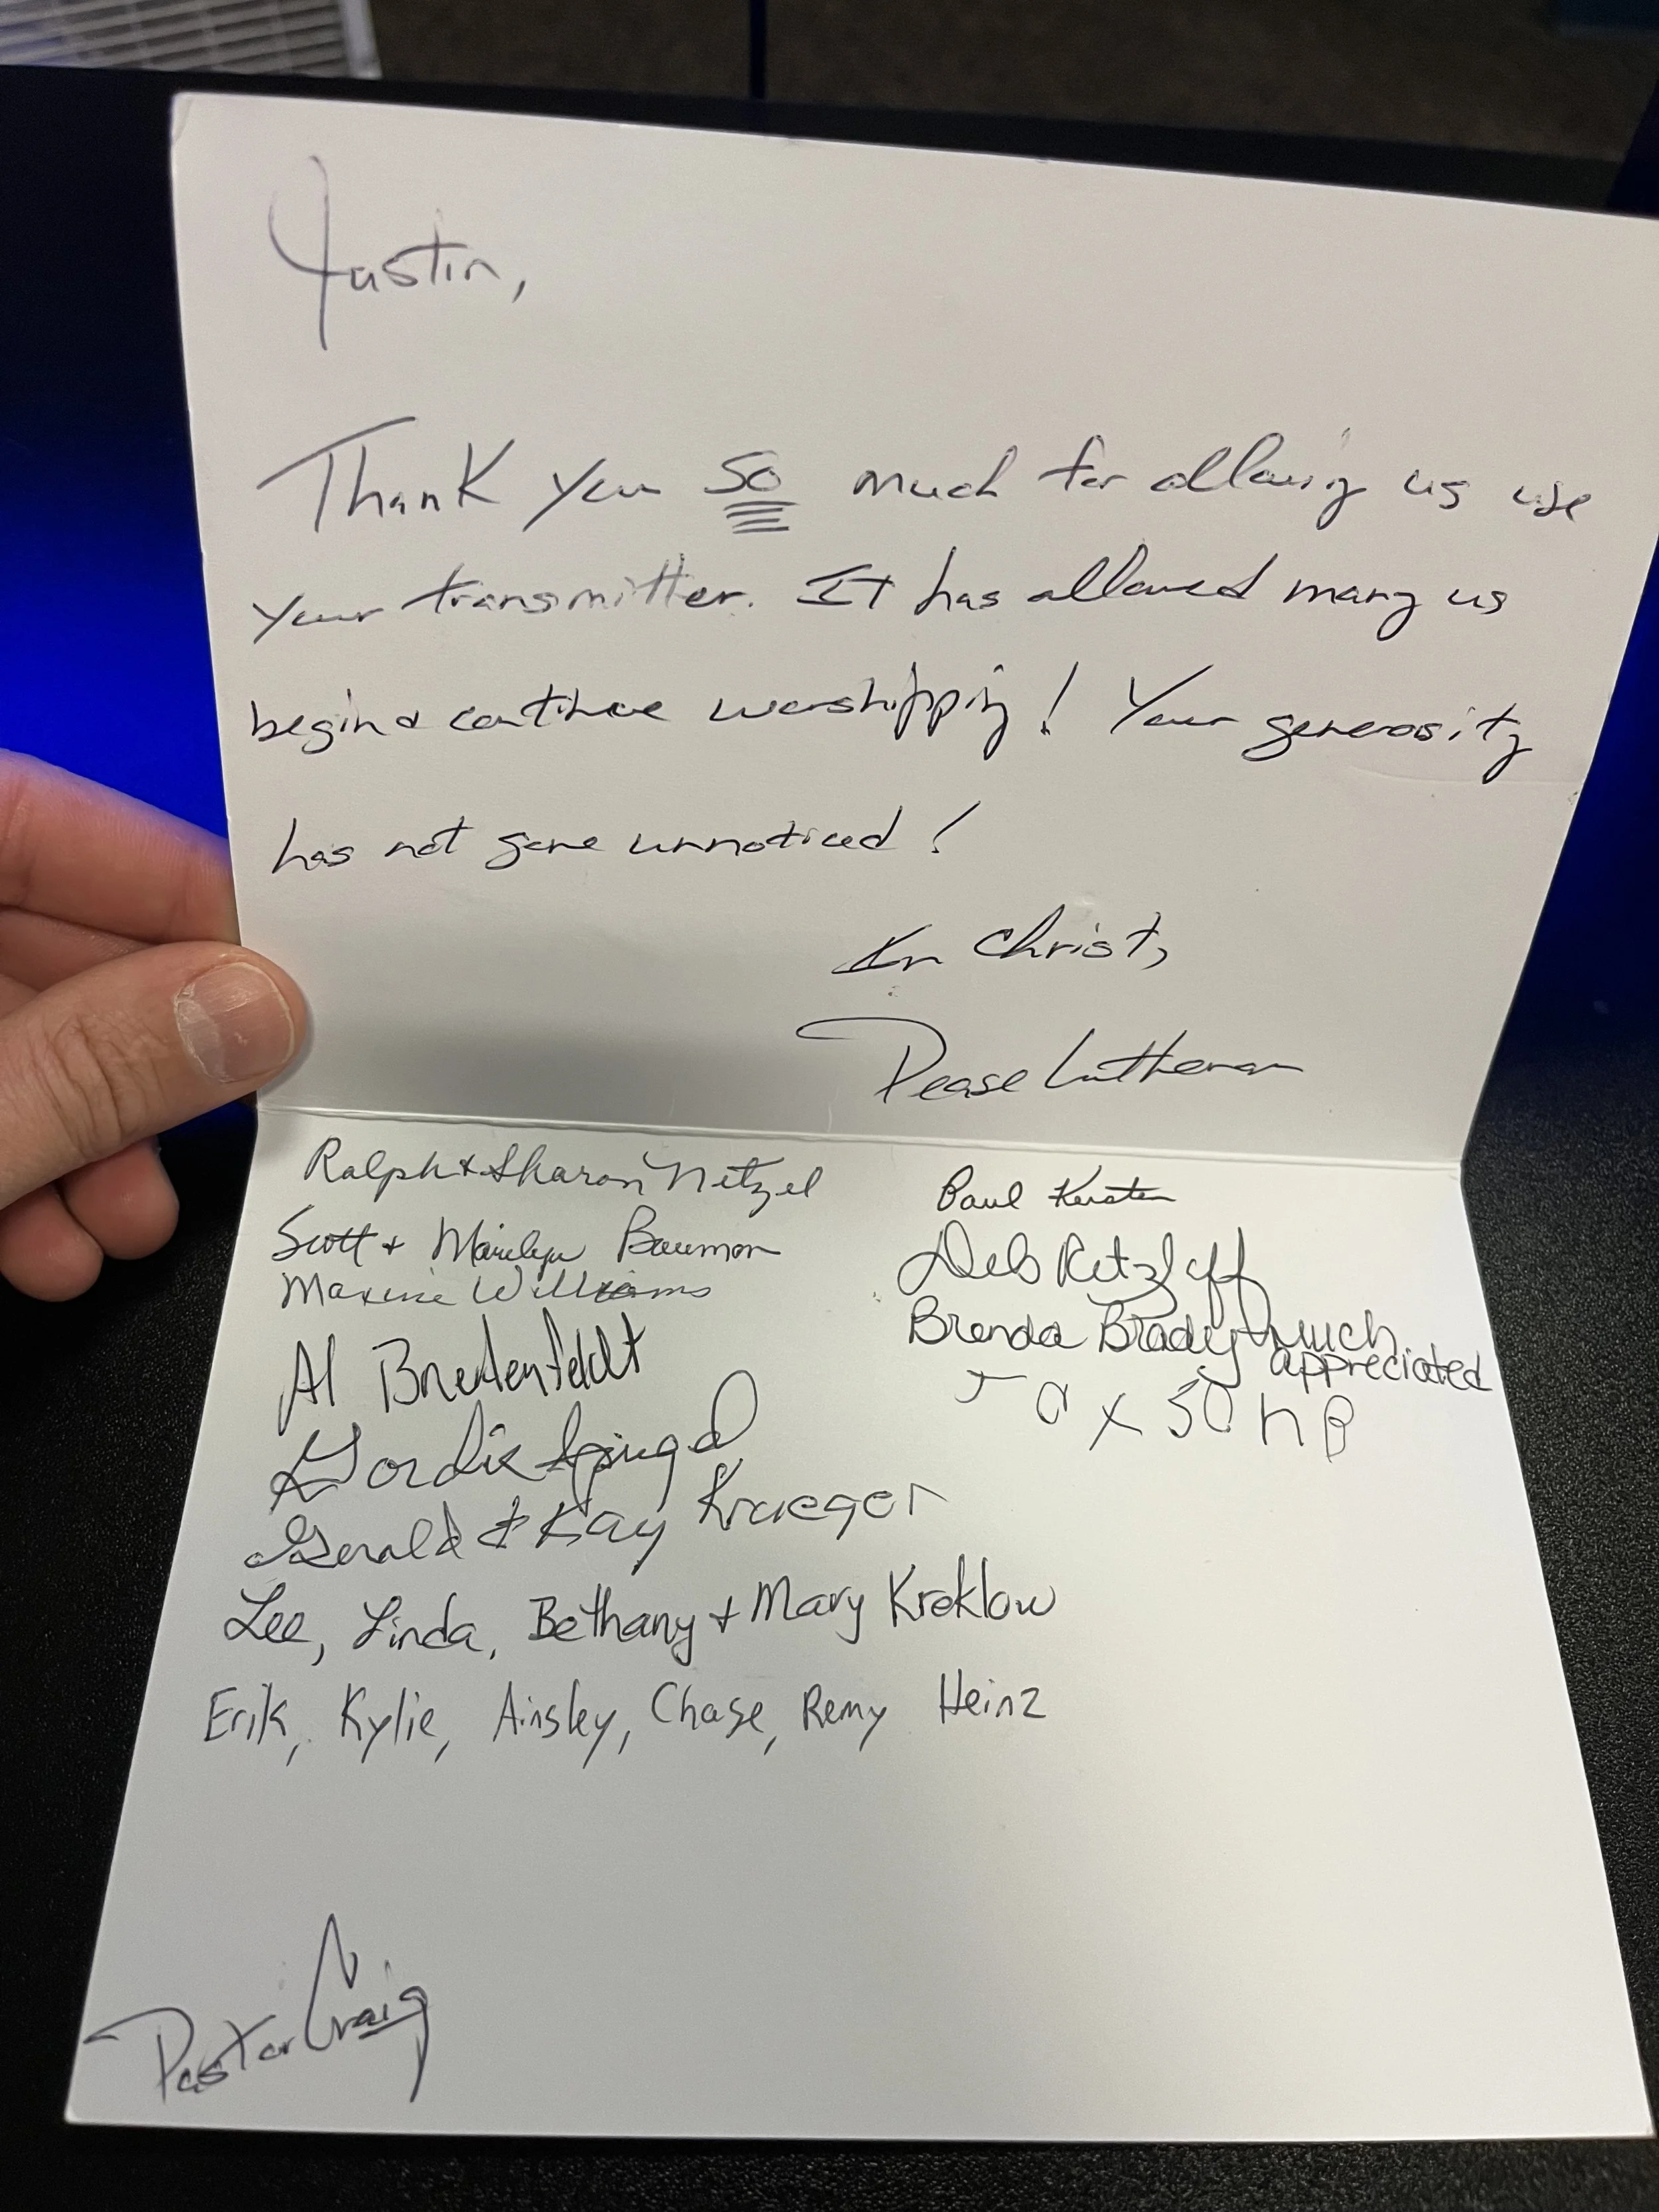 Justin,
Thank you so much for allowing us use
your transmitter. It has allowed many us
begin & continue worshipping! Your generosity
has not gone unnoticed!
In Christ,
Pease Lutheran
Ralph & Sharon Netzel
Scott + Marilyn Bauman
Maxine Williams
Al
Gordie
Gerald & Kay Krueger
Lee, Linda, Bethany + Mary Kreklow
Erik, Kylie, Ainsley, Chase, Remy Heinz
Pastor Craig
Paul Kersten
Deb Retzlaff
Brenda Brady - much
appreciated